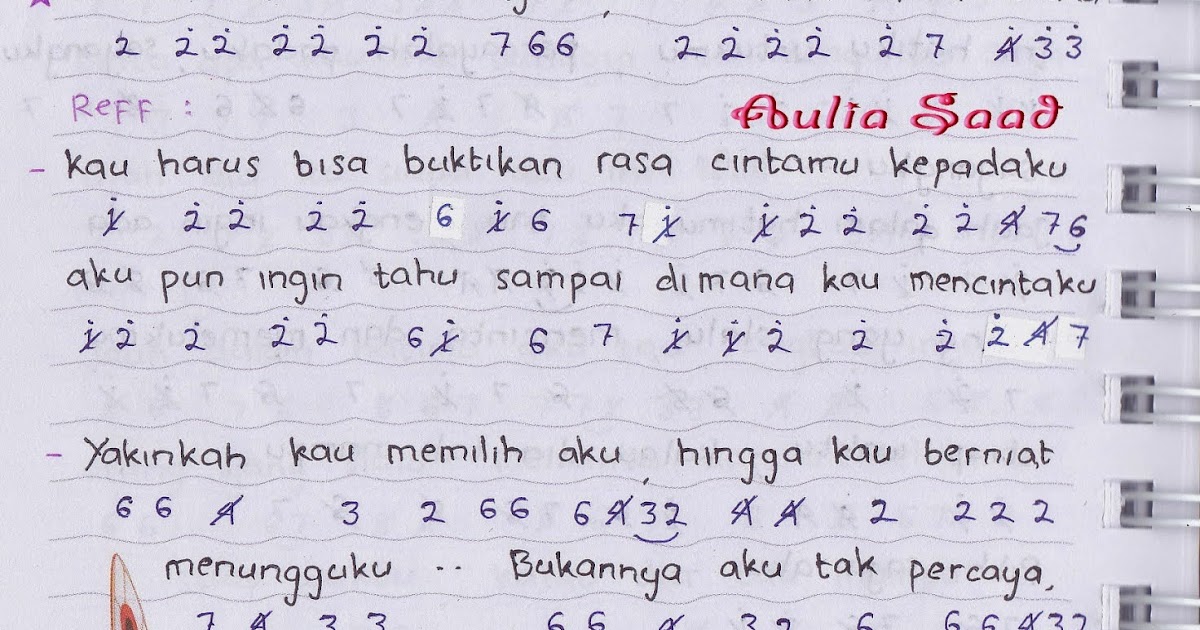 2̇ 2̇ 2̇ 2̇ 2̇ 2̇ 2̇ 7 6 6 2 2̇ 2̇ 2̇ 2̇ 7 4̸̇ 3̇ 3̇
Reff :
Aulia Saad
- kau harus bisa buktikan rasa cintamu kepadaku
1̸̇ 2̇ 2̇ 2̇ 2̇ 6 1̸̇ 6 7 1̸̇ 1̸̇ 2̇ 2̇ 2̇ 2̇ 4̸ 7 6
aku pun ingin tahu sampai dimana kau mencintaku
1̸̇ 2̇ 2̇ 2̇ 2̇ 6 1̸̇ 6 7 1̸̇ 1̸̇ 2̇ 2̇ 2̇ 2̇ 4̸ 7
- Yakinkah kau memilih aku, hingga kau berniat
6 6 4̸ 3 2 6 6 6 4̸ 3 2 4̸ 4̸ 2 2 2 2
menungguku .. Bukannya aku tak percaya,
7 4̸ 3 3 6 6 4̸ 3 2 6 6 6 4̸ 3 2